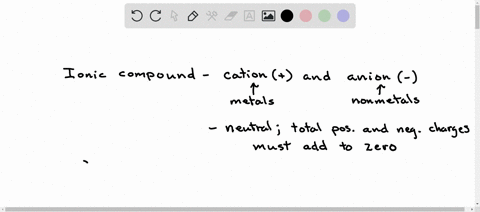 Ionic compound - cation (+) and anion (-)
metals nonmetals
- neutral; total pos. and neg. charges
must add to zero